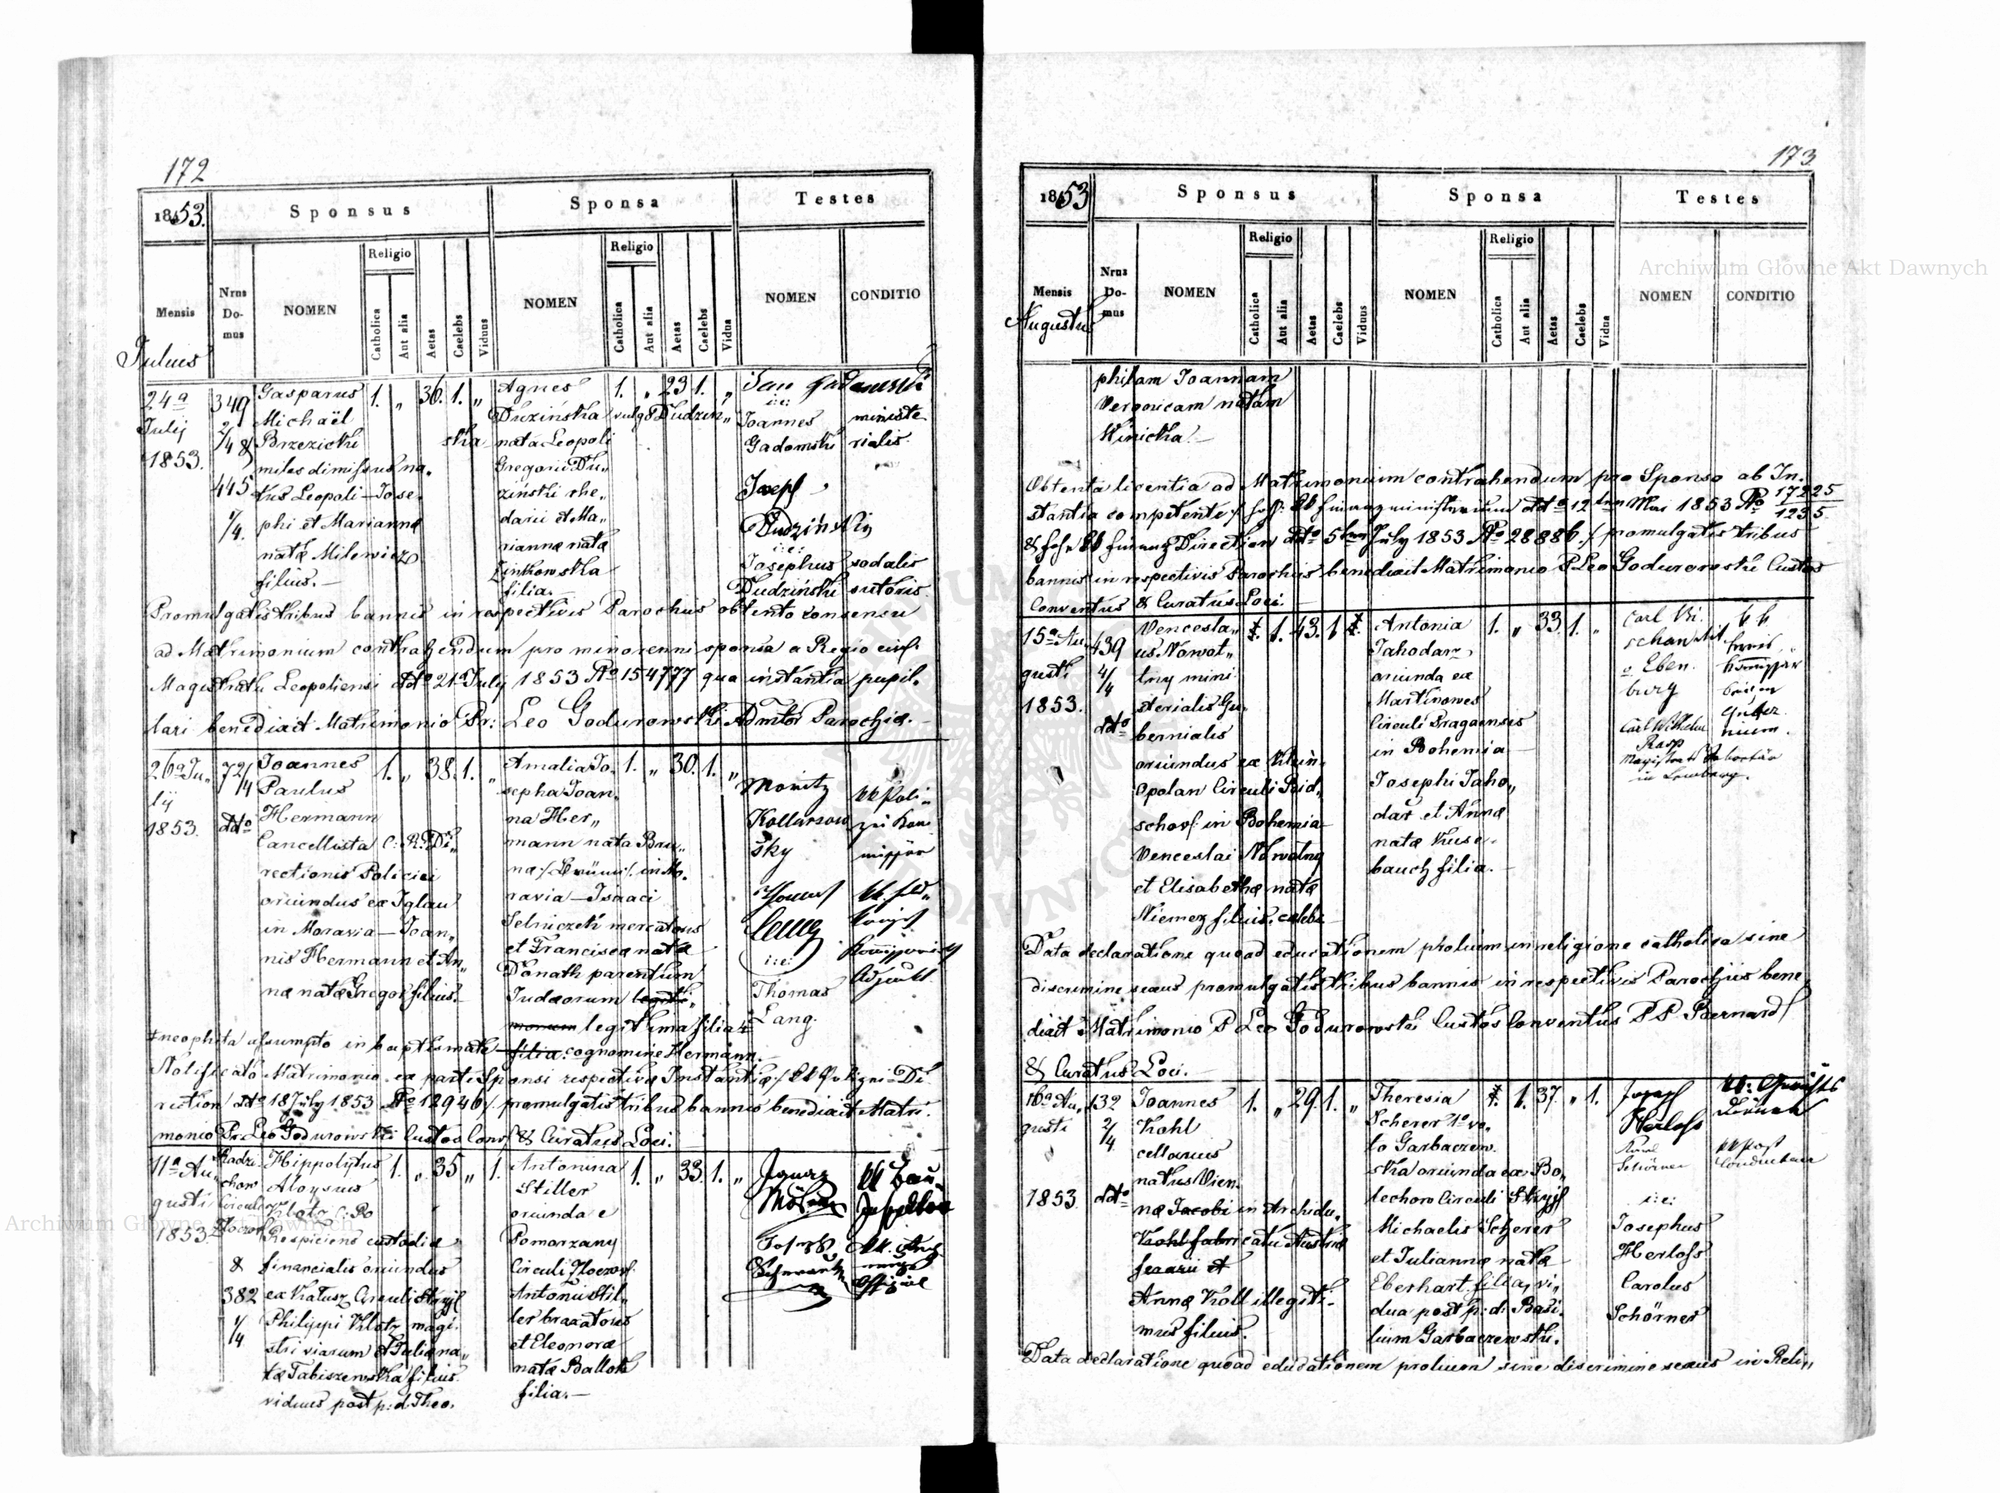 172
1853.
Sponsus
Sponsa
Testes
Mensis
Nrus Do- mus
NOMEN
Religio
Catholica
Aut alia
Aetas
Caelebs
Viduus
NOMEN
Religio
Catholica
Aut alia
Aetas
Caelebs
Vidua
NOMEN
CONDITIO
Julius
24a July 1853.
349 2/4 &
445 1/4.
Gasparus
Michaël
Brzezicki
miles dimissus na,
tus Leopoli – Jose,
phi et Marianna
nata Milewicz
filius. –
1. „ 36. 1. „
Agnes
Dłuzińska vulgo Dudzin„
ska nata Leopoli
Gregorii Du„
zinski rhe„
darii et Ma„
rianna nata
Zinkowska
filia.
1. „ 23 1. „
Jan Gadomski
i: e:
Joannes
Gadomski
ministe
rialis
Joseph
Dudziński
i: e:
Josephus sodalis
Dudziński sutoris
Promulgatis tribus bannis in respectivis Parochiis obtento consensu
ad Matrimonium contrahendum pro minorenni sponsa a Regio civ.
Magistratu Leopoliensi ddto 21a July 1853 No 154777 qua instantia pupil,
lari benedixit Matrimonio Pr: Leo Godurowski Admtor Parochia. –
26a Ju„
ly
1853.
72/4
ddto
Joannes
Paulus
Hermann
Cancellista C: R: Di„
rectionis Policiei
oriundus ex Iglau
in Moravia – Joan„
nis Hermann et An„
na nata Gregor filius. –
1. „ 38. 1. „
Amalia Jo„
sepha Joan„
na Her„
mann nata Bru„
na /: Brünn :/ in Mo„
ravia – Isaaci
Selniczek mercatoris
et Francisca nata
Donath parentum
Judaeorum
legitima filia
1. „ 30. 1. „
Moritz
Kollursow
sky
kk Poli„
zei Kom
missär
Thomas
Lang
i: e:
Thomas
Lang.
Adjunkt
neophita assumpto in baptismate filia cognomine Hermann. –
Notificato Matrimonio ex parte Sponsi respectiva Instantia
rection ddto 18 July 1853 No 12946 / promulgatis tribus bannis benedixit Matri„
monio Pr. Leo Godurowski Custos Conv. & Curatus Loci. –
11a Au„
gusti
1853.
Radzi„
chow
Circuli
Złoczow
&
382
1/4
Hippolytus
Aloysius
Klotz C: R:
Respiciens custodia
financialis oriundus
ex Kałusz Circuli Stryj
Philippi Klotz magi„
stri viarum et Juliana„
ta Tabiszewska filius
viduus post p: d: Theo„
1. „ 35 „ 1.
Antonina
Stiller
oriunda e
Pomorzany
Circuli Złoczow.
Antonii Stil„
ler braxatoris
et Eleonora
nata Ballok
filia. –
1. „ 33. 1. „
Ignaz
kk Bau„
Inspektor
Official
173
1853
Sponsus
Sponsa
Testes
Mensis
Nrus Do- mus
NOMEN
Religio
Catholica
Aut alia
Aetas
Caelebs
Viduus
NOMEN
Religio
Catholica
Aut alia
Aetas
Caelebs
Vidua
NOMEN
CONDITIO
Augustus
philam Joannam
Veronicam natam
Winicka. –
Obtenta licentia ad Matrimonium contrahendum pro Sponso ab In„
stantia competente /: ddto 12ten Mai 1853 No 17225/1235
& Finanz Direction ddto 5ten July 1853 No 28886 / promulgatis tribus
bannis in respectivis Parochiis benedixit Matrimonio P Leo Godurowski Custos
Conventus & Curatus Loci. –
15a Au„
gusti
1853.
439
4/4
ddto
Vencesla„
us Nowot„
lny mini
sterialis Gu„
bernialis
oriundus ex Klein„
Opolan Circuli Bid„
schow in Bohemia
Venceslai Nowotny
et Elisabetha nata
Niemez filius. caleb:
1. 43. 1.
Antonia
Jahodarz
oriunda ex
Martinowes
Circuli Pragaensis
in Bohemia
Josephi Jaho„
dař et Anna
nata Kuse„
bauch filia. –
1. „ 33. 1. „
Carl
Eben„
burg
kk
Carl Wilhelm
Rasp
in Lemberg.
Data declaratione quoad educationem prolium in religione catholica sine
discrimine sexus promulgatis tribus bannis in respectivis Parochiis bene„
dixit Matrimonio P Leo Godurowski Custos Conventus PP Bernard
& Curatus Loci. –
16a Au„
gusti
1853
132
2/4
ddto
Joannes
Kohl
cellarius
natus Vien„
na Jacobi in Archidu„
Kohl fabri catu Austria
ferarii et
Anna Koll illegiti„
mus filius.
1. „ 29. 1. „
Theresia
Scherer 1o vo„
to Garbaczew„
ska oriunda ex Bo„
lechow Circuli Stryj
Michaelis Scherer
et Julianna nata
Eberhart filia, vi„
dua post p: d: Basi„
lium Garbaczewski.
1. 37. „ 1.
Joseph
Herloss
Karl
Schörner
kk Post
Conducteur
i: e:
Josephus
Herloss
Carolus
Schörner
Data declaratione quoad educationem prolium sine discrimine sexus in Reli„
Archiwum Główne Akt Dawnych
Archiwum Główne Akt Dawnych